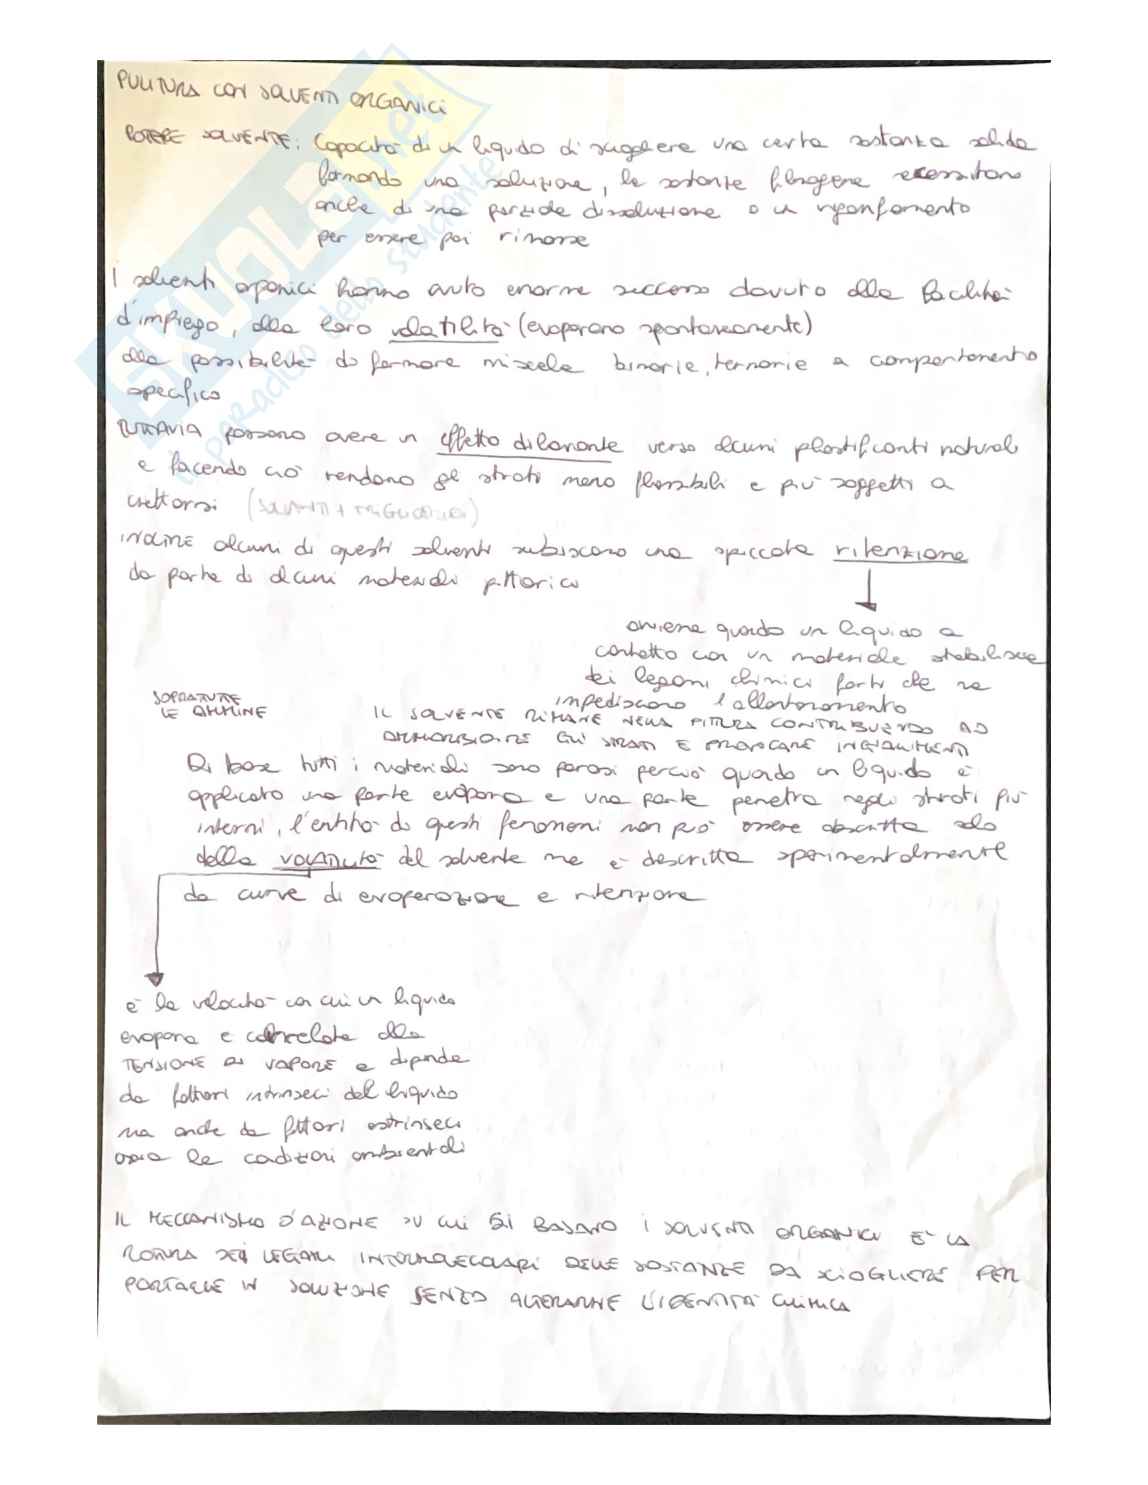 PULITURA CON SOLVENTI ORGANICI
POTERE SOLVENTE: Capacità di un liquido di sciogliere una certa sostanza solida
formando una soluzione, le sostanze filmogene necessitano
anche di una parziale dissoluzione o un rigonfiamento
per essere poi rimosse
I solventi organici hanno avuto enorme successo dovuto alla facilità
d'impiego, alla loro volatilità (evaporano spontaneamente)
alla possibilità di formare miscele binarie, ternarie a comportamento
specifico
TUTTAVIA possono avere un effetto dilavante verso alcuni plastificanti naturali
e facendo ciò rendono gli strati meno flessibili e più soggetti a
crettarsi (SOLVENTI +
INOLTRE alcuni di questi solventi subiscono una spiccata ritenzione
da parte di alcuni materiali pittorici
avviene quando un liquido a
contatto con un materiale stabilisce
dei legami chimici forti che ne
impediscono l'allontanamento
SOPRATUTTO
LE AMMINE
IL SOLVENTE RIMANE NELLA PITTURA CONTRIBUENDO AD
AMMORBIDIRE GLI STRATI E PROVOCARE INGIALLIMENTI
Di base tutti i materiali sono porosi perciò quando un liquido è
applicato una parte evapora e una parte penetra negli strati più
interni, l'entità di questi fenomeni non può essere descritta solo
dalla VOLATILITÀ del solvente ma è descritta sperimentalmente
da curve di evaporazione e ritenzione
è la velocità con cui un liquido
evapora e correlata alla
TENSIONE DI VAPORE e dipende
da fattori intrinseci del liquido
ma anche da fattori estrinseci
ossia le condizioni ambientali
IL MECCANISMO D'AZIONE SU CUI SI BASANO I SOLVENTI ORGANICI È LA
ROTTURA DEI LEGAMI INTERMOLECOLARI DELLE SOSTANZE DA SCIOGLIERE PER
PORTARLE IN SOLUZIONE SENZA ALTERARNE L'IDENTITÀ CHIMICA
SKUOLA.net
il paradiso dello studente